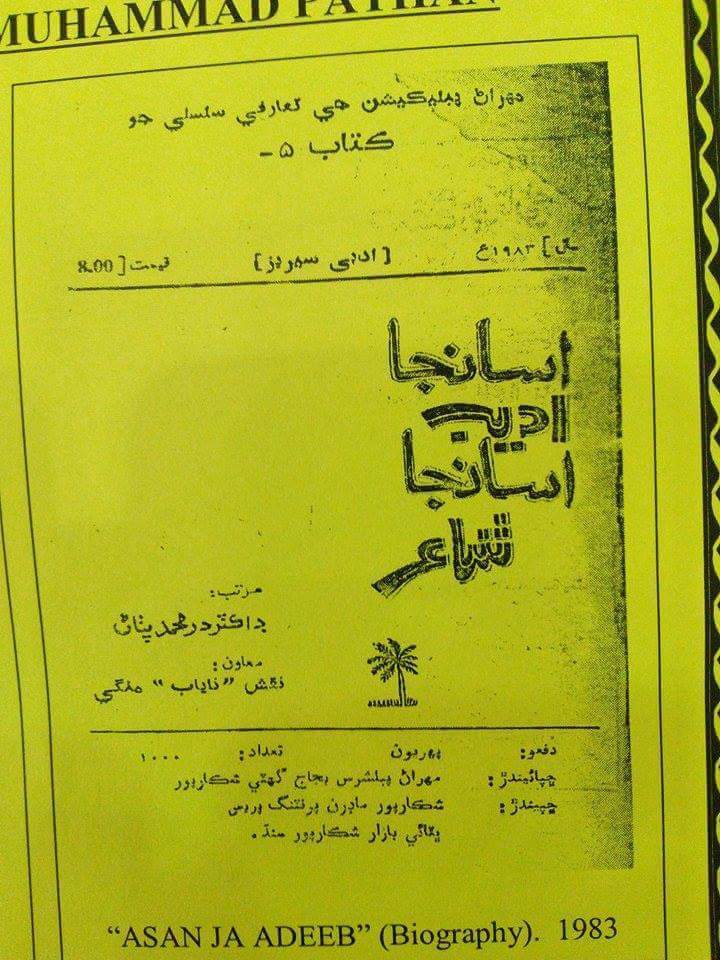 MUHAMMAD PATHAN
مهراڻ پبليڪيشن جي تعارفي سلسلي جو
ڪتاب ۵ -
سال ] ۱۹۸۳ع [ ادبي سيريز ] قيمت [ 8.00
اسانجا
اديب
اسانجا
شاعر
مرتب:
ڊاڪٽر در محمد پٺاڻ
معاون:
نقش "ناياب" منگي
دفعو: پهريون تعداد: ۱۰۰۰
ڇپائيندڙ: مهراڻ پبلشرس بجاج گهٽي شڪارپور
ڇپيندڙ: شڪارپور ماڊرن پرنٽنگ پريس
ڀٽائي بازار شڪارپور سنڌ.
“ASAN JA ADEEB” (Biography). 1983